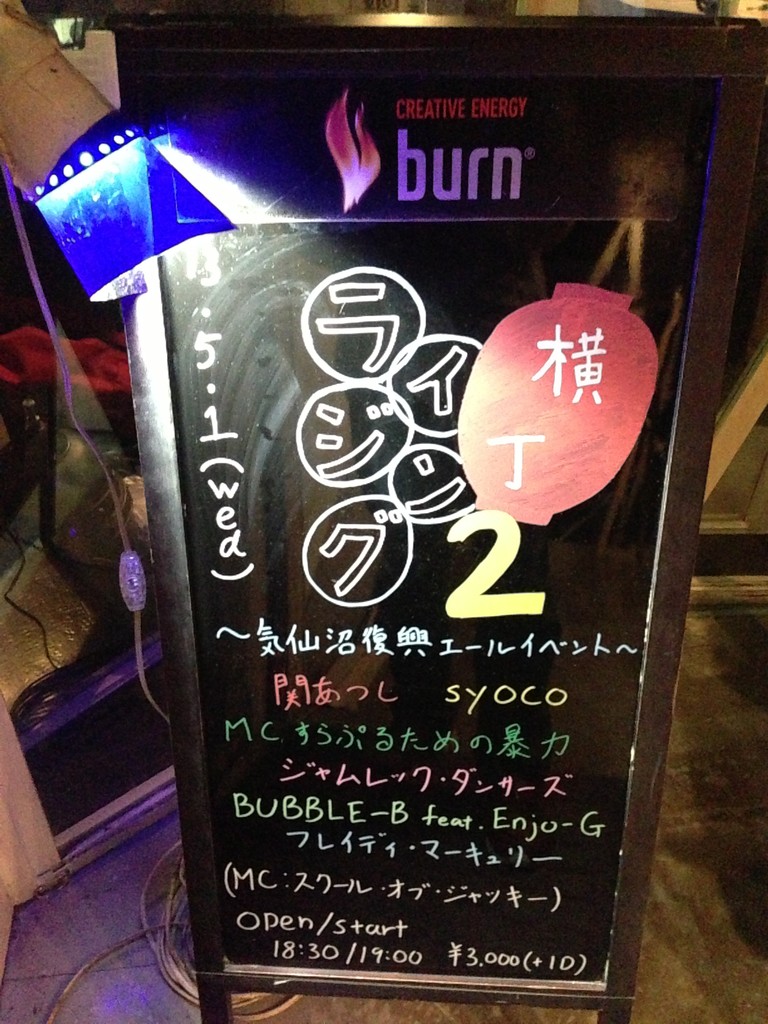 CREATIVE ENERGY
burn®
13.5.1(wed)
ライジング
横丁
2
～気仙沼復興エールイベント～
関あつし syoco
MC.すらぷるための暴力
ジャムレック・ダンサーズ
BUBBLE-B feat. Enjo-G
フレイディ・マーキュリー
(MC:スクール・オブ・ジャッキー)
open/start
18:30/19:00 ¥3,000(+1D)